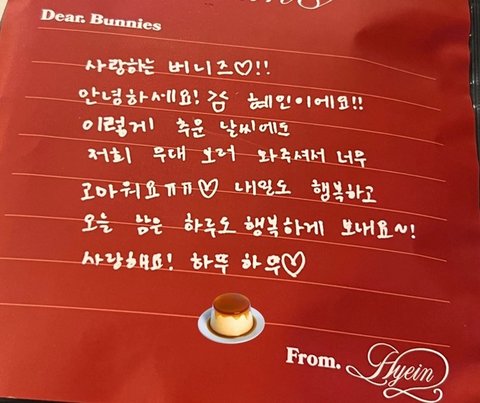 Dear. Bunnies
사랑하는 버니즈♡!!
안녕하세요! 검 혜인이에요!!
이렇게 추운 날씨에도
저희 무대 보러 와주셔서 너무
고마워요ㅠㅠ♡ 내일도 행복하고
오늘 남은 하루도 행복하게 보내요~!
사랑해요! 하뚜 하뚜♡
From. Hyein